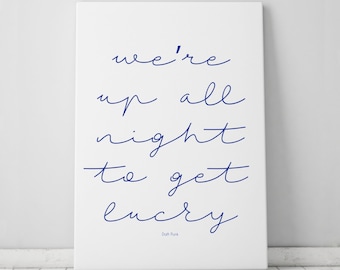 we're
up all
night
to get
lucky
Daft Punk